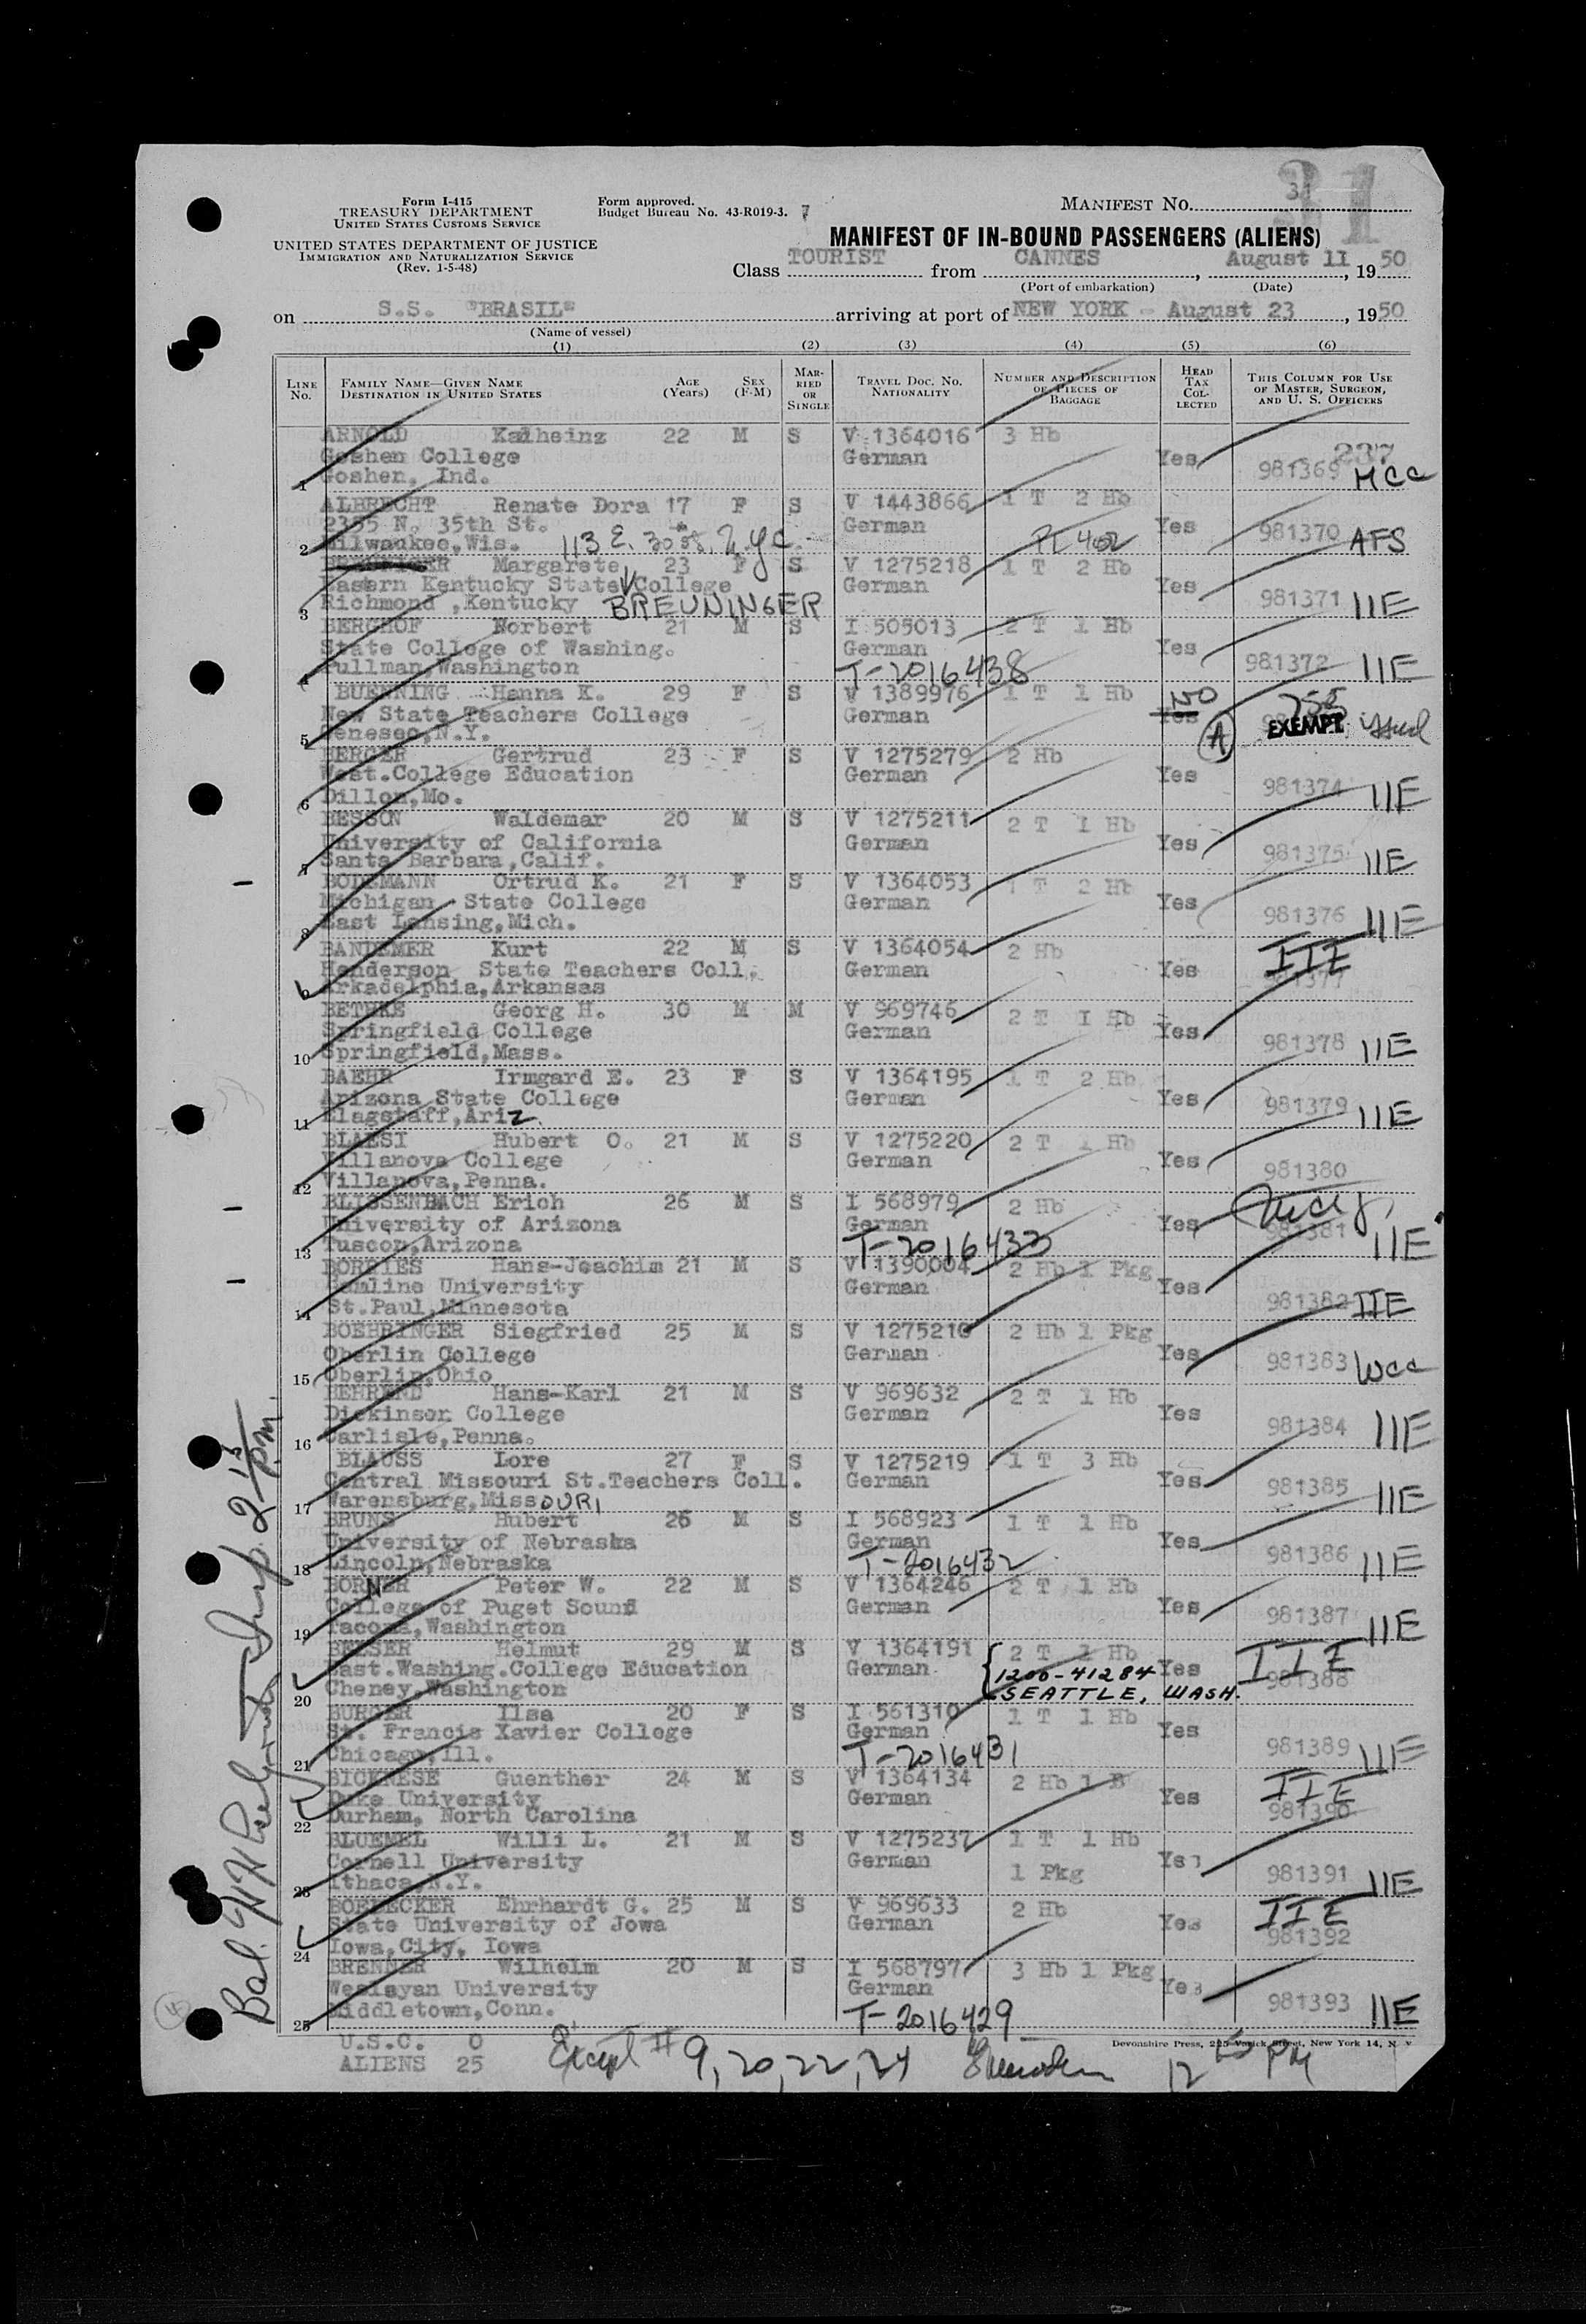 31
Form I-415
TREASURY DEPARTMENT
UNITED STATES CUSTOMS SERVICE
UNITED STATES DEPARTMENT OF JUSTICE
IMMIGRATION AND NATURALIZATION SERVICE
(Rev. 1-5-48)
Form approved.
Budget Bureau No. 43-R019-3.
MANIFEST No. 31
MANIFEST OF IN-BOUND PASSENGERS (ALIENS)
Class TOURIST from CANNES, August 11, 1950
(Port of embarkation) (Date)
on S.S. "BRASIL" arriving at port of NEW YORK - August 23, 1950
(Name of vessel)
(1) (2) (3) (4) (5) (6)
LINE No. FAMILY NAME—GIVEN NAME DESTINATION IN UNITED STATES AGE (Years) SEX (F-M) MARRIED OR SINGLE TRAVEL DOC. No. NATIONALITY NUMBER AND DESCRIPTION OF PIECES OF BAGGAGE HEAD TAX COLLECTED THIS COLUMN FOR USE OF MASTER, SURGEON, AND U. S. OFFICERS
ARNOLD Kalheinz 22 M S V 1364016 3 Hb
Goshen College German Yes 237
1 Goshen, Ind. 981369 MCC
ALBRECHT Renate Dora 17 F S V 1443866 1 T 2 Hb
2355 N. 35th St. German Yes
2 Milwaukee,Wis. 113 E. 30 981370 AFS
Margarete 23 F S V 1275218 1 T 2 Hb
Eastern Kentucky State College German Yes
3 Richmond ,Kentucky BREUNINGER 981371 IIE
BERGHOF Norbert 21 M S I 505013 2 T 1 Hb
State College of Washing. German Yes
4 Pullman,Washington T-2016438 981372 IIE
BUENNING Hanna K. 29 F S V 1389976 1 T 1 Hb NO
New State Teachers College German Yes
5 Geneseo,N.Y. A EXEMPT
BERGER Gertrud 23 F S V 1275279 2 Hb
West.College Education German Yes
6 Dillon,Mo. 981374 IIE
BESSON Waldemar 20 M S V 1275211 2 T 1 Hb
University of California German Yes
7 Santa Barbara,Calif. 981375 IIE
BODEMANN Ortrud K. 21 F S V 1364053 1 T 2 Hb
Michigan State College German Yes
8 East Lansing,Mich. 981376 IIE
BANDEMER Kurt 22 M S V 1364054 2 Hb
Henderson State Teachers Coll. German Yes IIE
9 Arkadelphia,Arkansas 981377
BETHKE Georg H. 30 M M V 969746 2 T 1 Hb
Springfield College German Yes
10 Springfield,Mass. 981378 IIE
BAEHR Irmgard E. 23 F S V 1364195 1 T 2 Hb
Arizona State College German Yes
11 Flagstaff,Ariz. 981379 IIE
BLAESI Hubert O. 21 M S V 1275220 2 T 1 Hb
Villanova College German Yes
12 Villanova,Penna. 981380
BLISSENBACH Erich 26 M S I 568979 2 Hb
University of Arizona German Yes
13 Tuscon,Arizona T-2016433 981381 IIE
BORRIES Hans-Joachim 21 M S V 1390004 2 Hb 1 Pkg
Hamline University German Yes
14 St.Paul,Minnesota 981382 IIE
BOEHRINGER Siegfried 25 M S V 1275210 2 Hb 1 Pkg
Oberlin College German Yes
15 Oberlin,Ohio 981383 WCC
BEHREND Hans-Karl 21 M S V 969632 2 T 1 Hb
Dickinson College German Yes
16 Carlisle,Penna. 981384 IIE
BLAUSS Lore 27 F S V 1275219 1 T 3 Hb
Central Missouri St.Teachers Coll. German Yes
17 Warensburg,MissOURI 981385 IIE
BRUNS Hubert 26 M S I 568923 1 T 1 Hb
University of Nebraska German Yes
18 Lincoln,Nebraska T-2016432 981386 IIE
BORNER Peter W. 22 M S V 1364246 2 T 1 Hb
College of Puget Sound German Yes
19 Tacoma,Washington 981387 IIE
BELSER Helmut 29 M S V 1364191 2 T 1 Hb
East.Washing.College Education German 1200-41284 Yes IIE
20 Cheney,Washington SEATTLE, WASH. 981388
BURGER Ilsa 20 F S I 561310 1 T 1 Hb
St. Francis Xavier College German Yes
21 Chicago,Ill. T-2016431 981389 IIE
BICKNESE Guenther 24 M S V 1364134 2 Hb 1 B
Duke University German Yes IIE
22 Durham, North Carolina 981390
BLUEMEL Willi L. 21 M S V 1275237 1 T 1 Hb
Cornell University German 1 Pkg Yes
23 Ithaca,N.Y. 981391 IIE
BOEDECKER Ehrhardt G. 25 M S V 969633 2 Hb
State University of Jowa German Yes IIE
24 Iowa,City, Iowa 981392
BRENNER Wilhelm 20 M S I 568797 3 Hb 1 Pkg
Wesleyan University German Yes
25 Middletown,Conn. T-2016429 981393 IIE
U.S.C. 0
ALIENS 25
Except # 9, 20, 22, 24
Devonshire Press, 225 Varick Street, New York 14, N. Y.